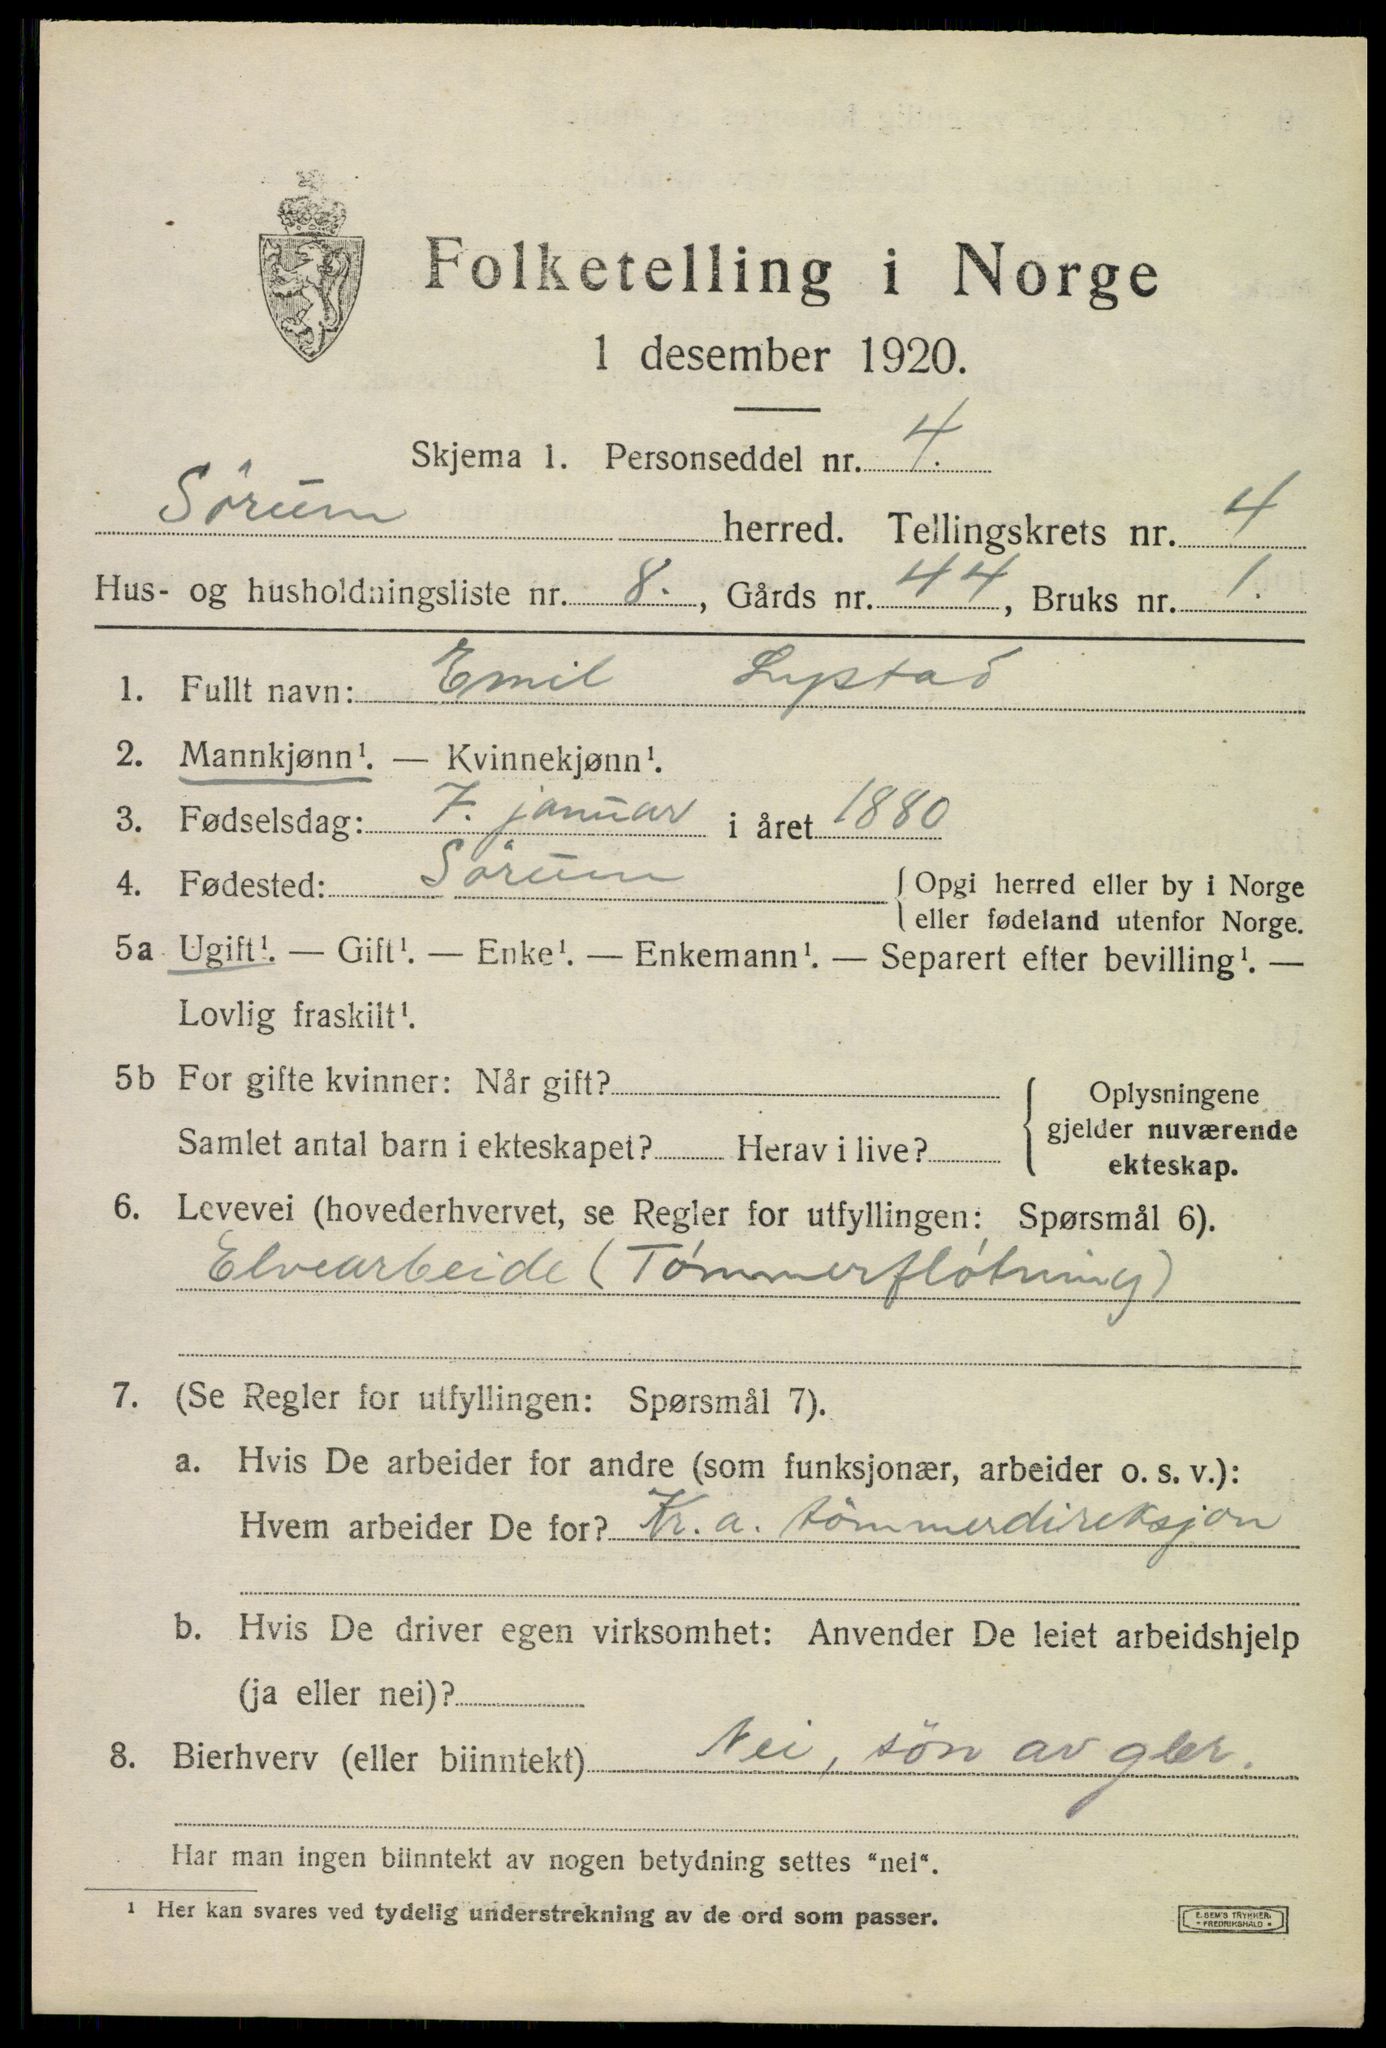 Folketelling i Norge
1 desember 1920.
Skjema 1. Personseddel nr. 4.
Sörum herred. Tellingskrets nr. 4
Hus- og husholdningsliste nr. 8. , Gårds nr. 44, Bruks nr. 1.
1. Fullt navn: Emil Lystad
2. Mannkjønn¹. — Kvinnekjønn¹.
3. Fødselsdag: 7. januar i året 1880
4. Fødested: Sörum { Opgi herred eller by i Norge
eller fødeland utenfor Norge.
5a Ugift¹. — Gift¹. — Enke¹. — Enkemann¹. — Separert efter bevilling¹. —
Lovlig fraskilt¹.
5b For gifte kvinner: Når gift?
Samlet antal barn i ekteskapet? Herav i live?
Oplysningene
gjelder nuværende
ekteskap.
6. Levevei (hovederhvervet, se Regler for utfyllingen: Spørsmål 6).
Elvearbeide (Tømmerfløtning)
7. (Se Regler for utfyllingen: Spørsmål 7).
a. Hvis De arbeider for andre (som funksjonær, arbeider o. s. v.):
Hvem arbeider De for? Kr. a. tömmerdireksjon
b. Hvis De driver egen virksomhet: Anvender De leiet arbeidshjelp
(ja eller nei)?
8. Bierhverv (eller biinntekt) Nei, sön av gbr.
Har man ingen biinntekt av nogen betydning settes "nei".
¹ Her kan svares ved tydelig understrekning av de ord som passer.
E. SEM'S TRYKKERI
• FREDRIKSHALD •